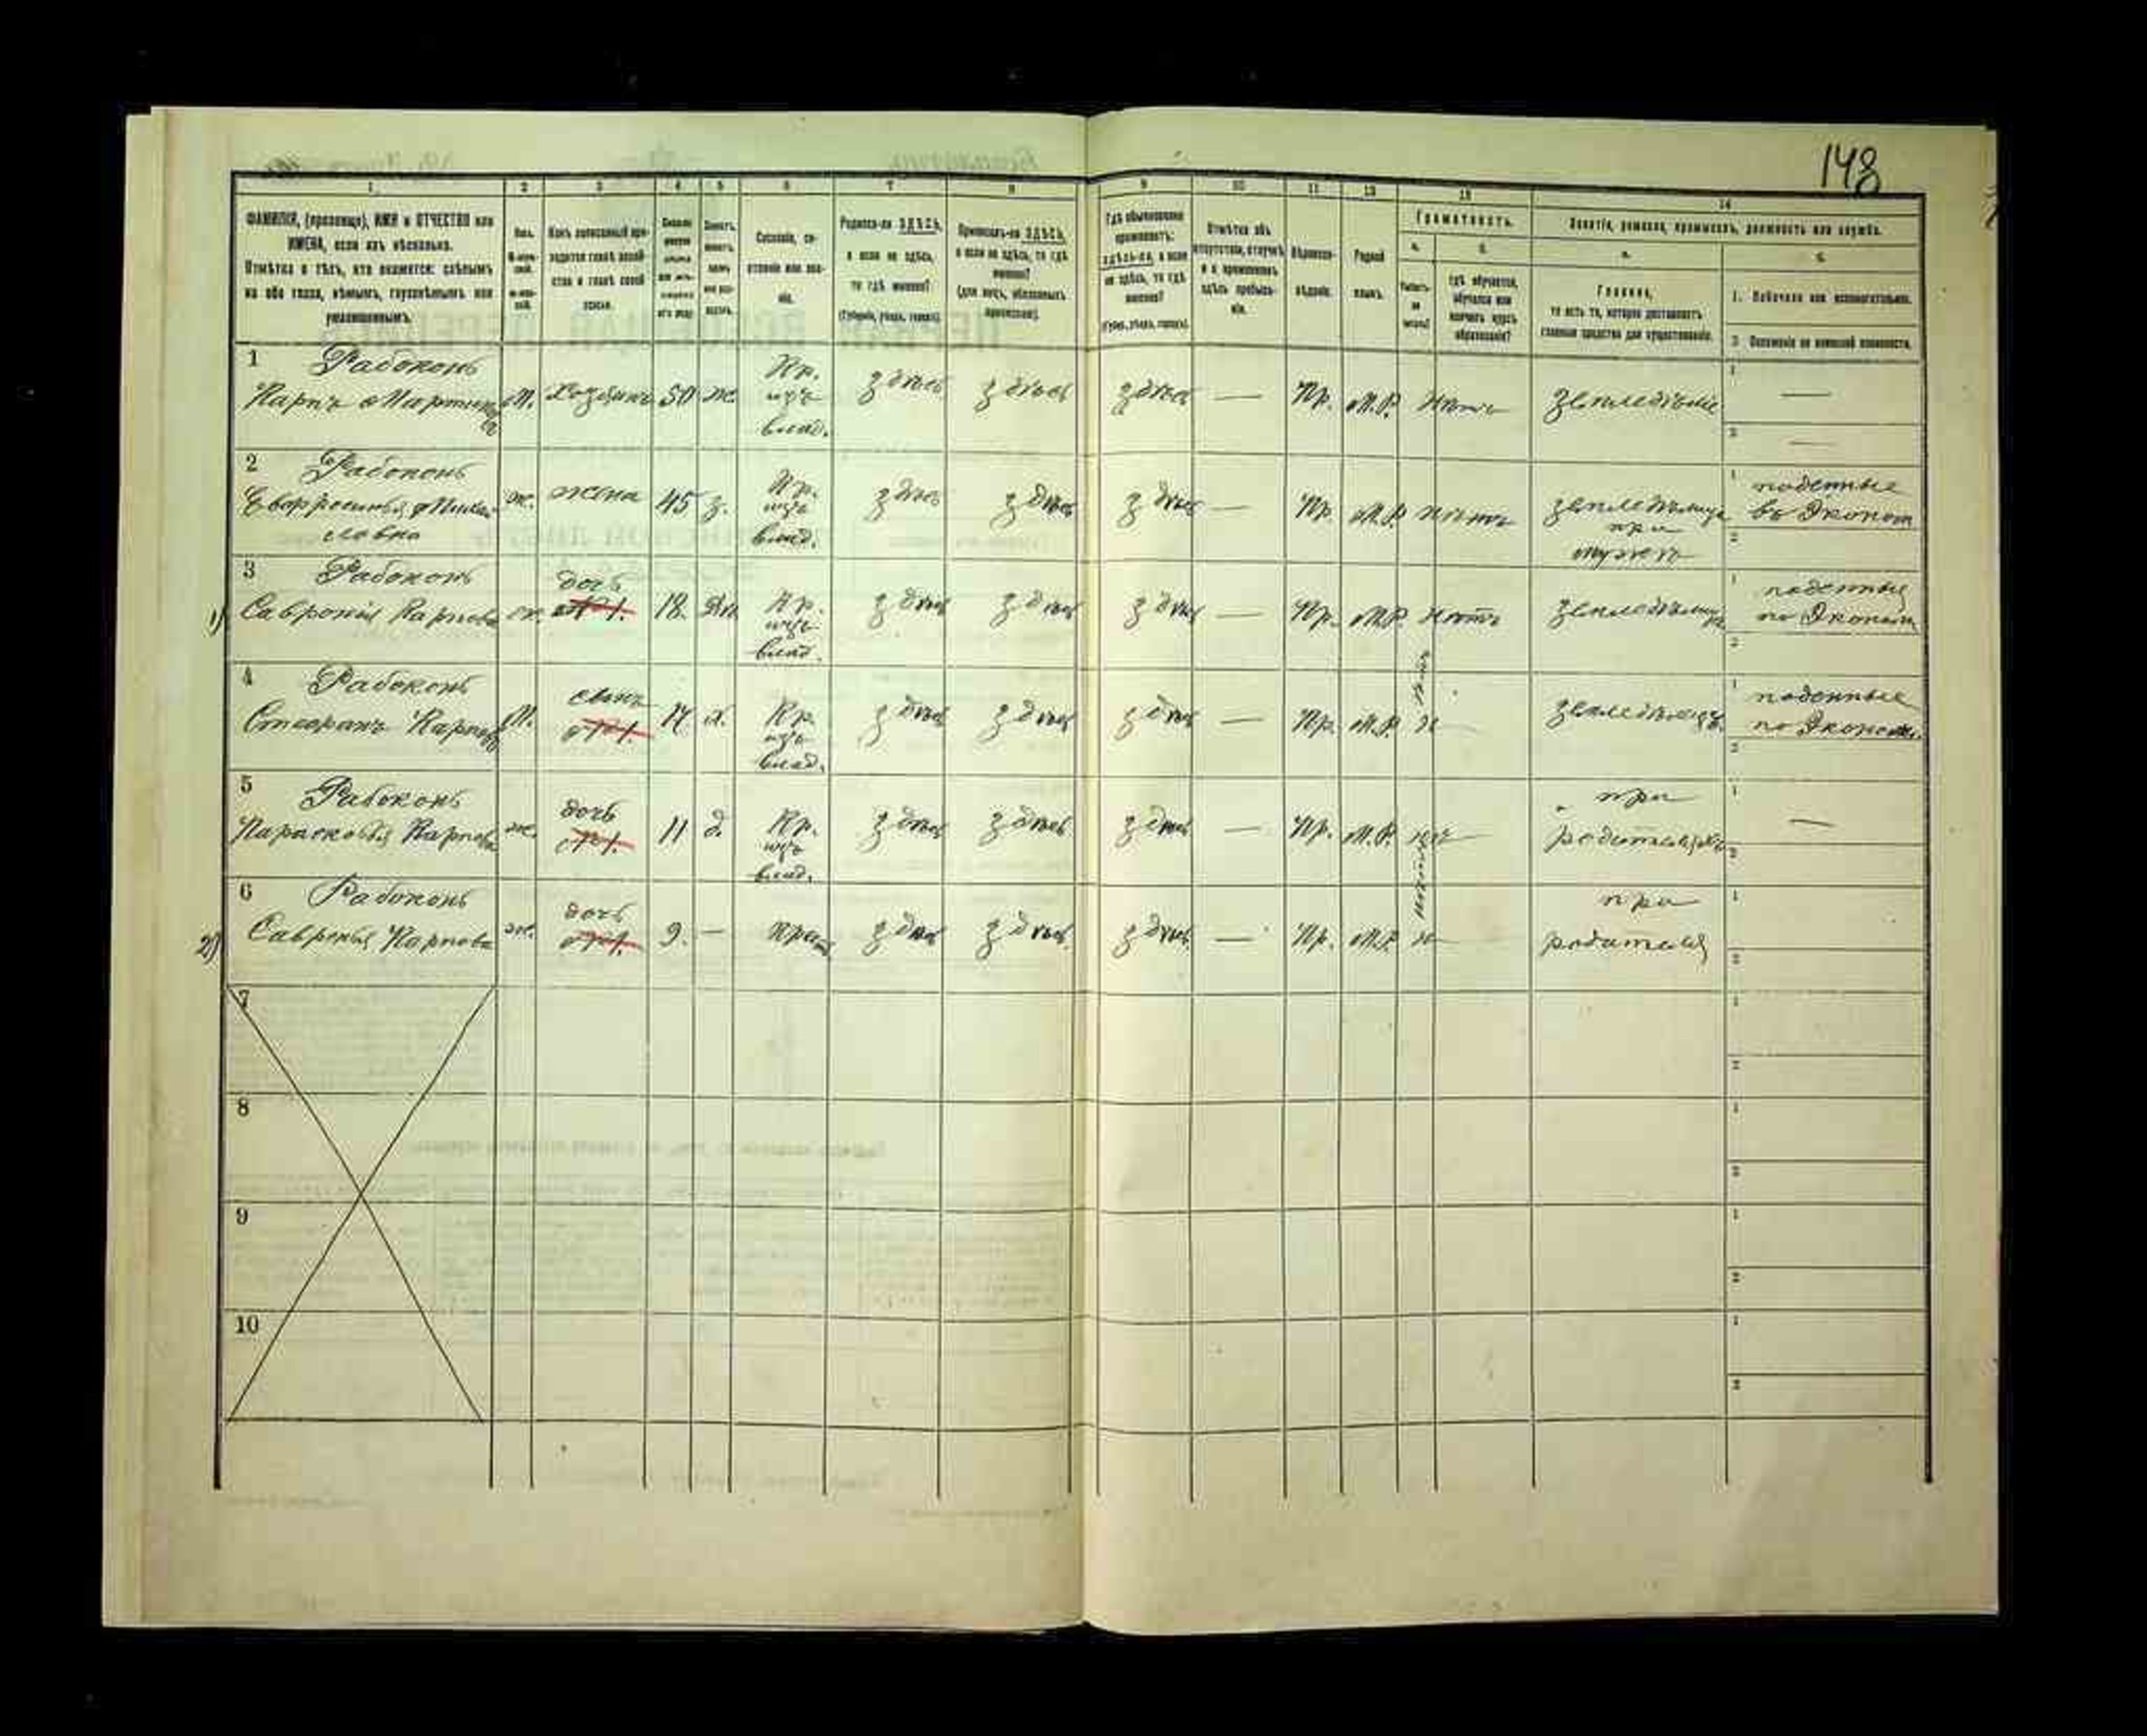 148
1 2 3 4 5 6 7 8 9 10 11 12 13 14
ФАМИЛІЯ, (прозвище), ИМЯ и ОТЧЕСТВО или
ИМЕНА, если ихъ нѣсколько.
Отмѣтка о тѣхъ, кто окажется: слѣпымъ
на оба глаза, нѣмымъ, глухонѣмымъ или
умалишеннымъ.
Полъ.
Какъ записанный при-
ходится главѣ хозяй-
ства и главѣ своей
семьи.
Сословіе, со-
стояніе или зва-
ніе.
Родился-ли ЗДѢСЬ,
а если не здѣсь,
то гдѣ именно?
(Губернія, уѣздъ, городъ).
Приписанъ-ли ЗДѢСЬ,
а если не здѣсь, то гдѣ
именно?
(для лицъ, обязанныхъ
припискою).
Гдѣ обыкновенно
проживаетъ:
здѣсь-ли, а если
не здѣсь, то гдѣ
именно?
(Губер., уѣздъ, городъ).
Отмѣтка объ
отсутствіи, отлучкѣ
и о временномъ
здѣсь пребыва-
ніи.
Вѣроиспо-
вѣданіе.
Родной
языкъ.
Грамотность.
а. б.
Умѣетъ-
ли
читать?
гдѣ обучается,
обучался или
кончилъ курсъ
образованія?
Занятіе, ремесло, промыселъ, должность или служба.
а.
Главное,
то есть то, которое доставляетъ
главныя средства для существованія.
б.
1. Побочное или вспомогательное.
2 Положеніе по воинской повинности.
1 Рабоконь
Карпъ Мартинов М. Хозяинъ 50 ж. Кр. изъ влад. здѣсь здѣсь здѣсь — Пр. М.Р. нѣтъ земледѣліе 1 —
2 —
2 Рабоконь
Евфросинья ж. жена 45 з. Кр. изъ влад. здѣсь здѣсь здѣсь — Пр. М.Р нѣтъ при мужѣ 1 поденные
въ Эконом
2
3 Рабоконь
1) Савронія Карпова ж. дочь 18. Кр. изъ влад. здѣсь здѣсь здѣсь — Пр. М.Р. нѣтъ 1 поденные
по Эконом
2
4 Рабоконь
Стефанъ Карпов М. сынъ х. Кр. изъ влад. здѣсь здѣсь здѣсь — Пр. М.Р. земледѣлецъ 1 поденные
по Эконом.
2
5 Рабоконь
Парасковья Карпова ж. дочь 11 д. Кр. изъ влад. здѣсь здѣсь здѣсь — Пр. М.Р. при родителяхъ 1 —
2
6 Рабоконь
2) Савронья Карпова ж. дочь 9. — здѣсь здѣсь здѣсь. — Пр. М.Р. при родителях 1
2
7 1
2
8 1
2
9 1
2
10 1
2